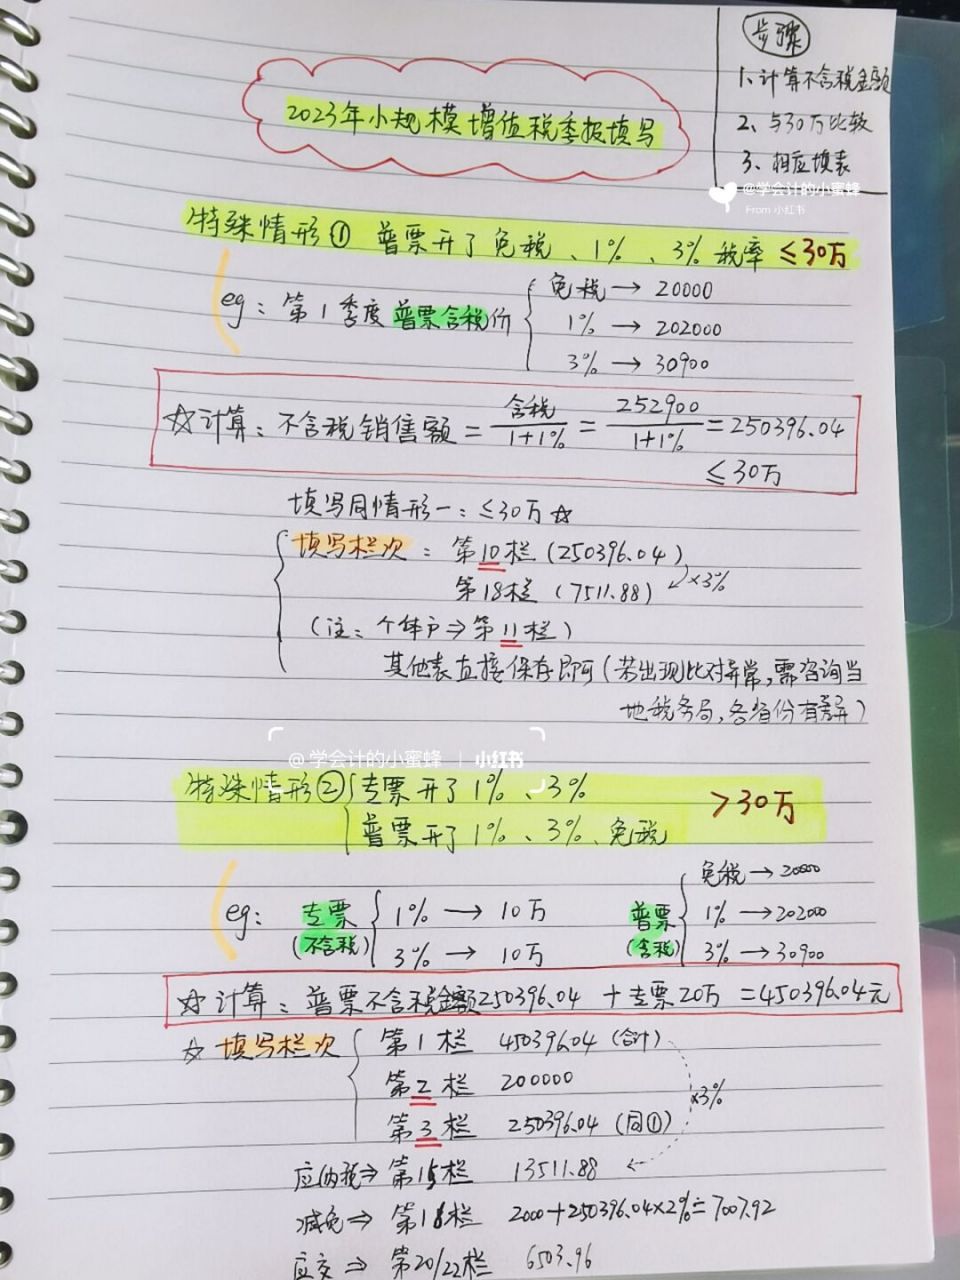 步骤
1、计算不含税金额
2、与30万比较
3、相应填表
2023年小规模增值税季报填写
@学会计的小蜜蜂
From 小红书
特殊情形① 普票开了免税、1%、3%税率 ≤30万
eg：第1季度普票含税价
免税→20000
1%→202000
3%→30900
☆计算：不含税销售额=含税/1+1%=252900/1+1%=250396.04
≤30万
填写同情形一：≤30万☆
填写栏次：第10栏(250396.04)
第18栏(7511.88) ×3%
(注：个体户⇒第11栏)
其他表直接保存即可(若出现比对异常,需咨询当
地税务局,各省份有差异)
@学会计的小蜜蜂 | 小红书
特殊情形② 专票开了1%、3%
普票开了1%、3%、免税
>30万
eg：专票(不含税)
1%→10万
3%→10万
普票(含税)
免税→20000
1%→202000
3%→30900
☆计算：普票不含税金额250396.04+专票20万=450396.04元
☆填写栏次
第1栏 450396.04(合计)
第2栏 200000
×3%
第3栏 250396.04(同①)
应纳税⇒第15栏 13511.88
减免⇒第18栏 2000+250396.04×2%=7007.92
应交⇒第20/22栏 6503.96